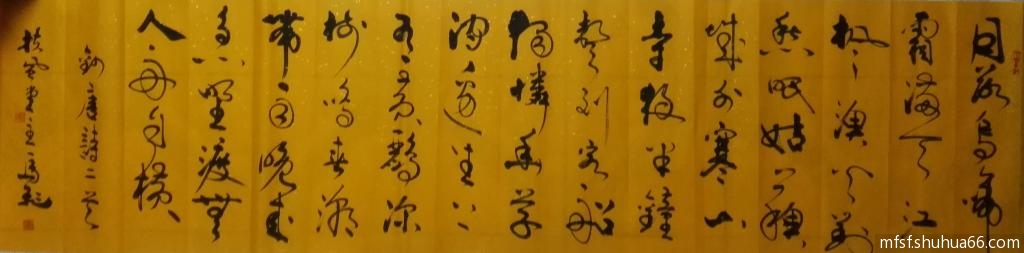 月落烏啼
霜滿天江
枫漁火對
愁眠姑蘇
城外寒山
寺夜半鐘
聲到客船
獨憐幽草
澗邊生上
有黄鸝深
樹鳴春潮
帶雨晚来
急野渡無
人舟自横
錄唐詩二首
扶風堂主馬
mfsf.shuhua66.com